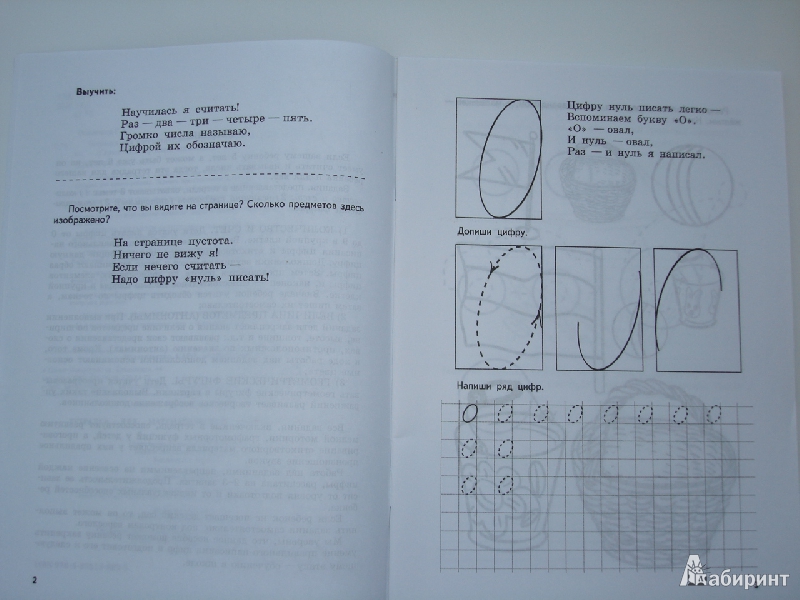 Выучить:
Научилась я считать!
Раз — два — три — четыре — пять.
Громко числа называю,
Цифрой их обозначаю.
Посмотрите, что вы видите на странице? Сколько предметов здесь
изображено?
На странице пустота.
Ничего не вижу я!
Если нечего считать —
Надо цифру «нуль» писать!
2
Цифру нуль писать легко —
Вспоминаем букву «О».
«О» — овал,
И нуль — овал.
Раз — и нуль я написал.
Допиши цифру.
Напиши ряд цифр.
0 0 0 0 0 0 0 0
0 0
0 0
Лабиринт